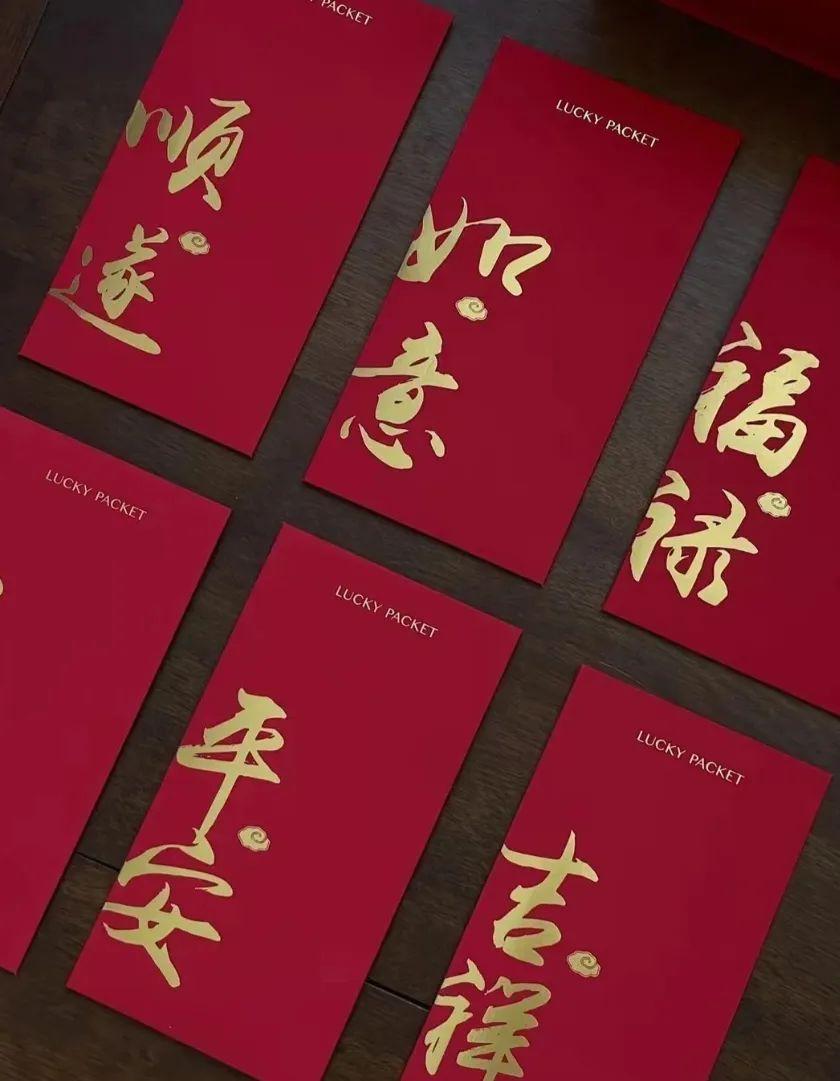 PACKET
顺
遂
LUCKY PACKET
如
意
福
禄
LUCKY PACKET
LUCKY PACKET
平
安
LUCKY PACKET
吉
祥